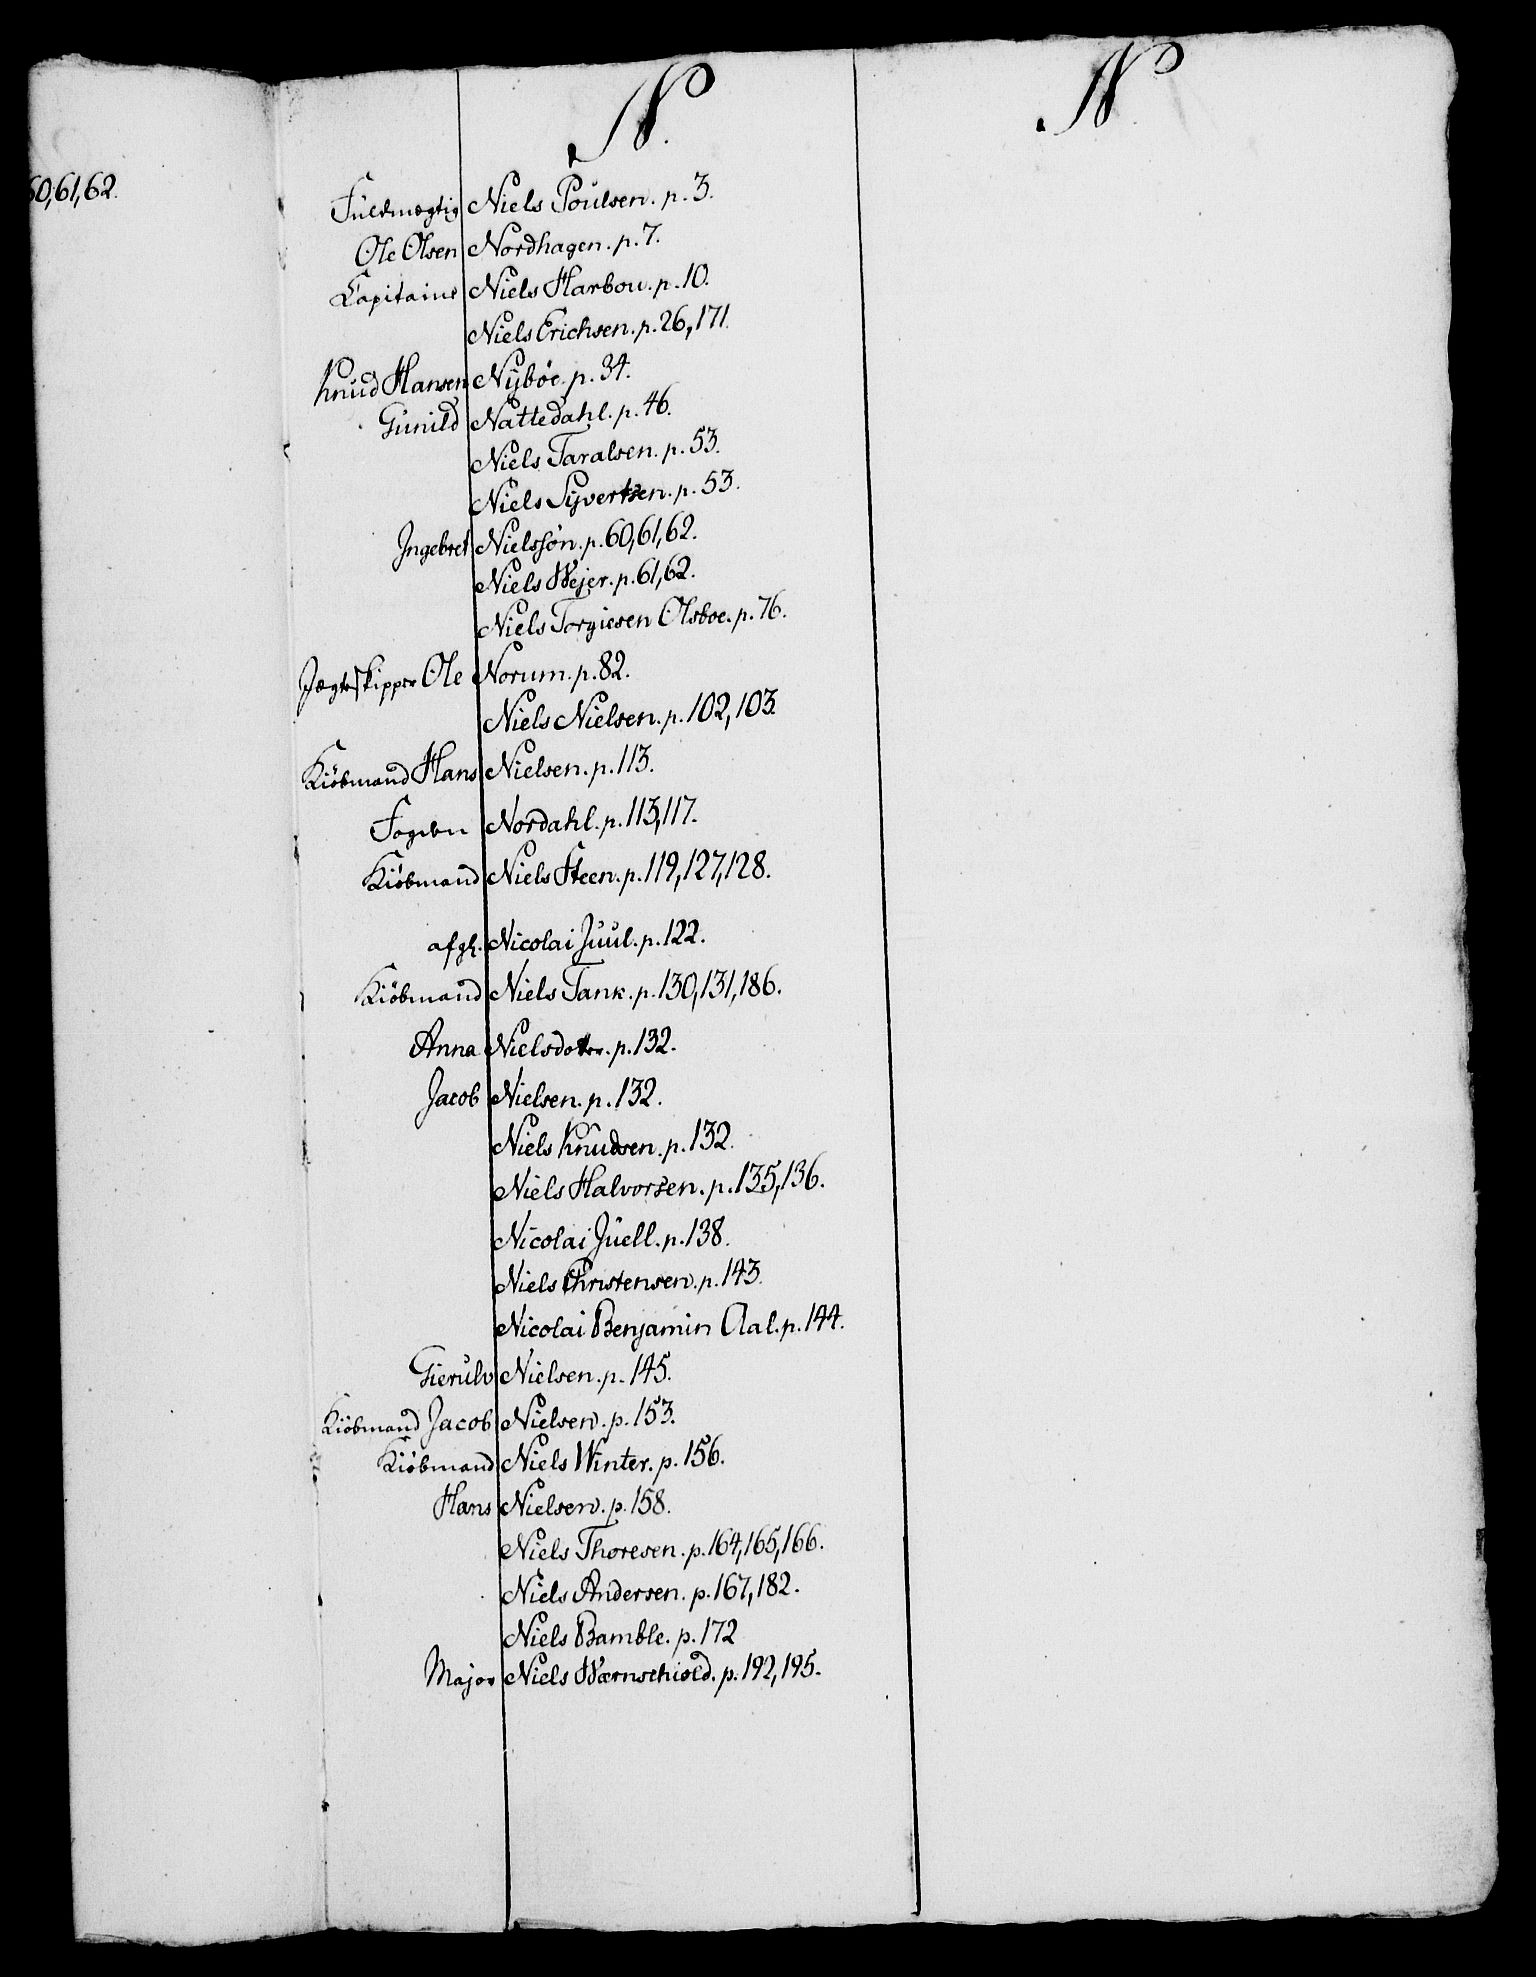 60,61,62.
N.
N.
Fuldmægtig Niels Poulsen. p. 3.
Ole Olsen Nordhagen. p. 7.
Capitaine Niels Harbou. p. 10.
Niels Erichsen. p. 26, 171.
Knud Hansen Nÿböe. p. 34.
Gunild Nattedahl. p. 46.
Niels Taralsen. p. 53.
Niels Syvertsen. p. 53.
Ingebret Nielssøn. p. 60, 61, 62.
Niels Wejer. p. 61, 62.
Niels Torgiesen Olsboe. p. 76.
Jægteskipper Ole Norum. p. 82.
Niels Nielsen. p. 102, 103.
Kiöbmand Hans Nielsen. p. 113.
Fogden Nordahl. p. 113, 117.
Kiöbmand Niels Steen. p. 119, 127, 128.
afg. Nicolai Juul. p. 122.
Kiöbmand Niels Tank. p. 130, 131, 186.
Anna Nielsdotter. p. 132.
Jacob Nielsen. p. 132.
Niels Knudsen. p. 132.
Niels Halvorsen. p. 135, 136.
Nicolai Juell. p. 138.
Niels Christensen. p. 143.
Nicolai Benjamin Aal. p. 144.
Gierulv Nielsen. p. 145.
Kiöbmand Jacob Nielsen. p. 153.
Kiöbmand Niels Winter. p. 156.
Hans Nielsen. p. 158.
Niels Thoresen. p. 164, 165, 166.
Niels Andersen. p. 167, 182.
Niels Bamble. p. 172
Major Niels Wærnschiold. p. 192, 195.